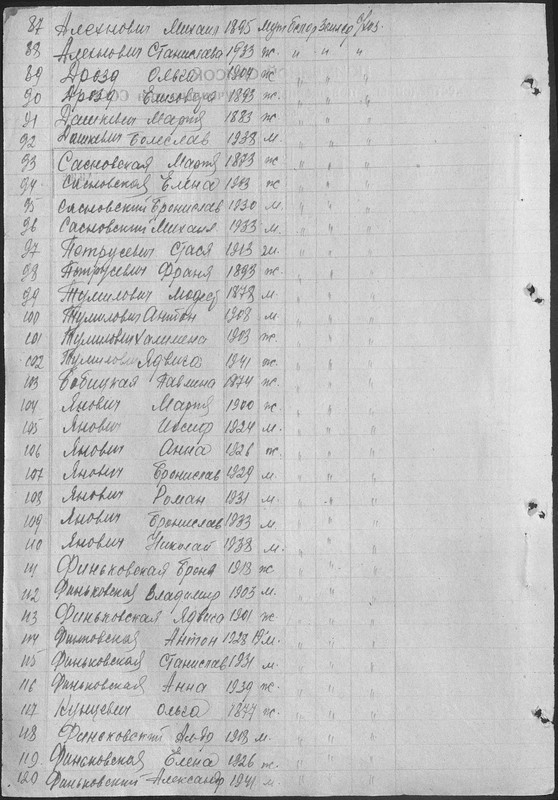 87 Алехнович Михаил 1895 муж белор
88 Алехнович Станислава 1933 ж. " " "
89 Дрозд Ольга 1904 ж " "
90 Дрозд Елизовета 1893 ж. " "
91 Дашкевич Мария 1883 ж " "
92 Дашкевич Болеслав 1938 м. " "
93 Сасновская Мария 1873 ж " "
94 Сасновская Елена 1903 ж. " "
95 Сасновский Бронислав 1930 м. " "
96 Сасновский Михаил 1933 м. " "
97 Петрусевич Стася 1913 " "
98 Петрусевич Франя 1893 ж. " "
99 Тумилович 1878 м. " "
100 Тумилович Антон 1908 м. " "
101 Тумилович 1903 ж. " "
102 Тумилович Ядвига 1941 ж. " "
103 Павлина 1874 ж. " "
104 Янович Мария 1900 ж " "
105 Янович Иосиф 1924 м. " "
106 Янович Анна 1926 ж. " "
107 Янович Бронислав 1929 м. " "
108 Янович Роман 1931 м. " "
109 Янович Бронислав 1933 м. " "
110 Янович Николай 1938 м. " "
111 Финьковская Броня 1913 ж " "
112 Финьковская Владимир 1903 м. " "
113 Финьковская Ядвига 1901 ж " "
114 Финковская Антон 1928 м. " "
115 Финьковская Станислав 1931 м. " "
116 Финьковская Анна 1939 ж. " "
117 Кунцевич Ольга 1877 ж. " "
118 Финьковский 1913 м. " "
119 Финьковская Елена 1926 ж. " "
120 Финьковский Александр 1941 м. " "